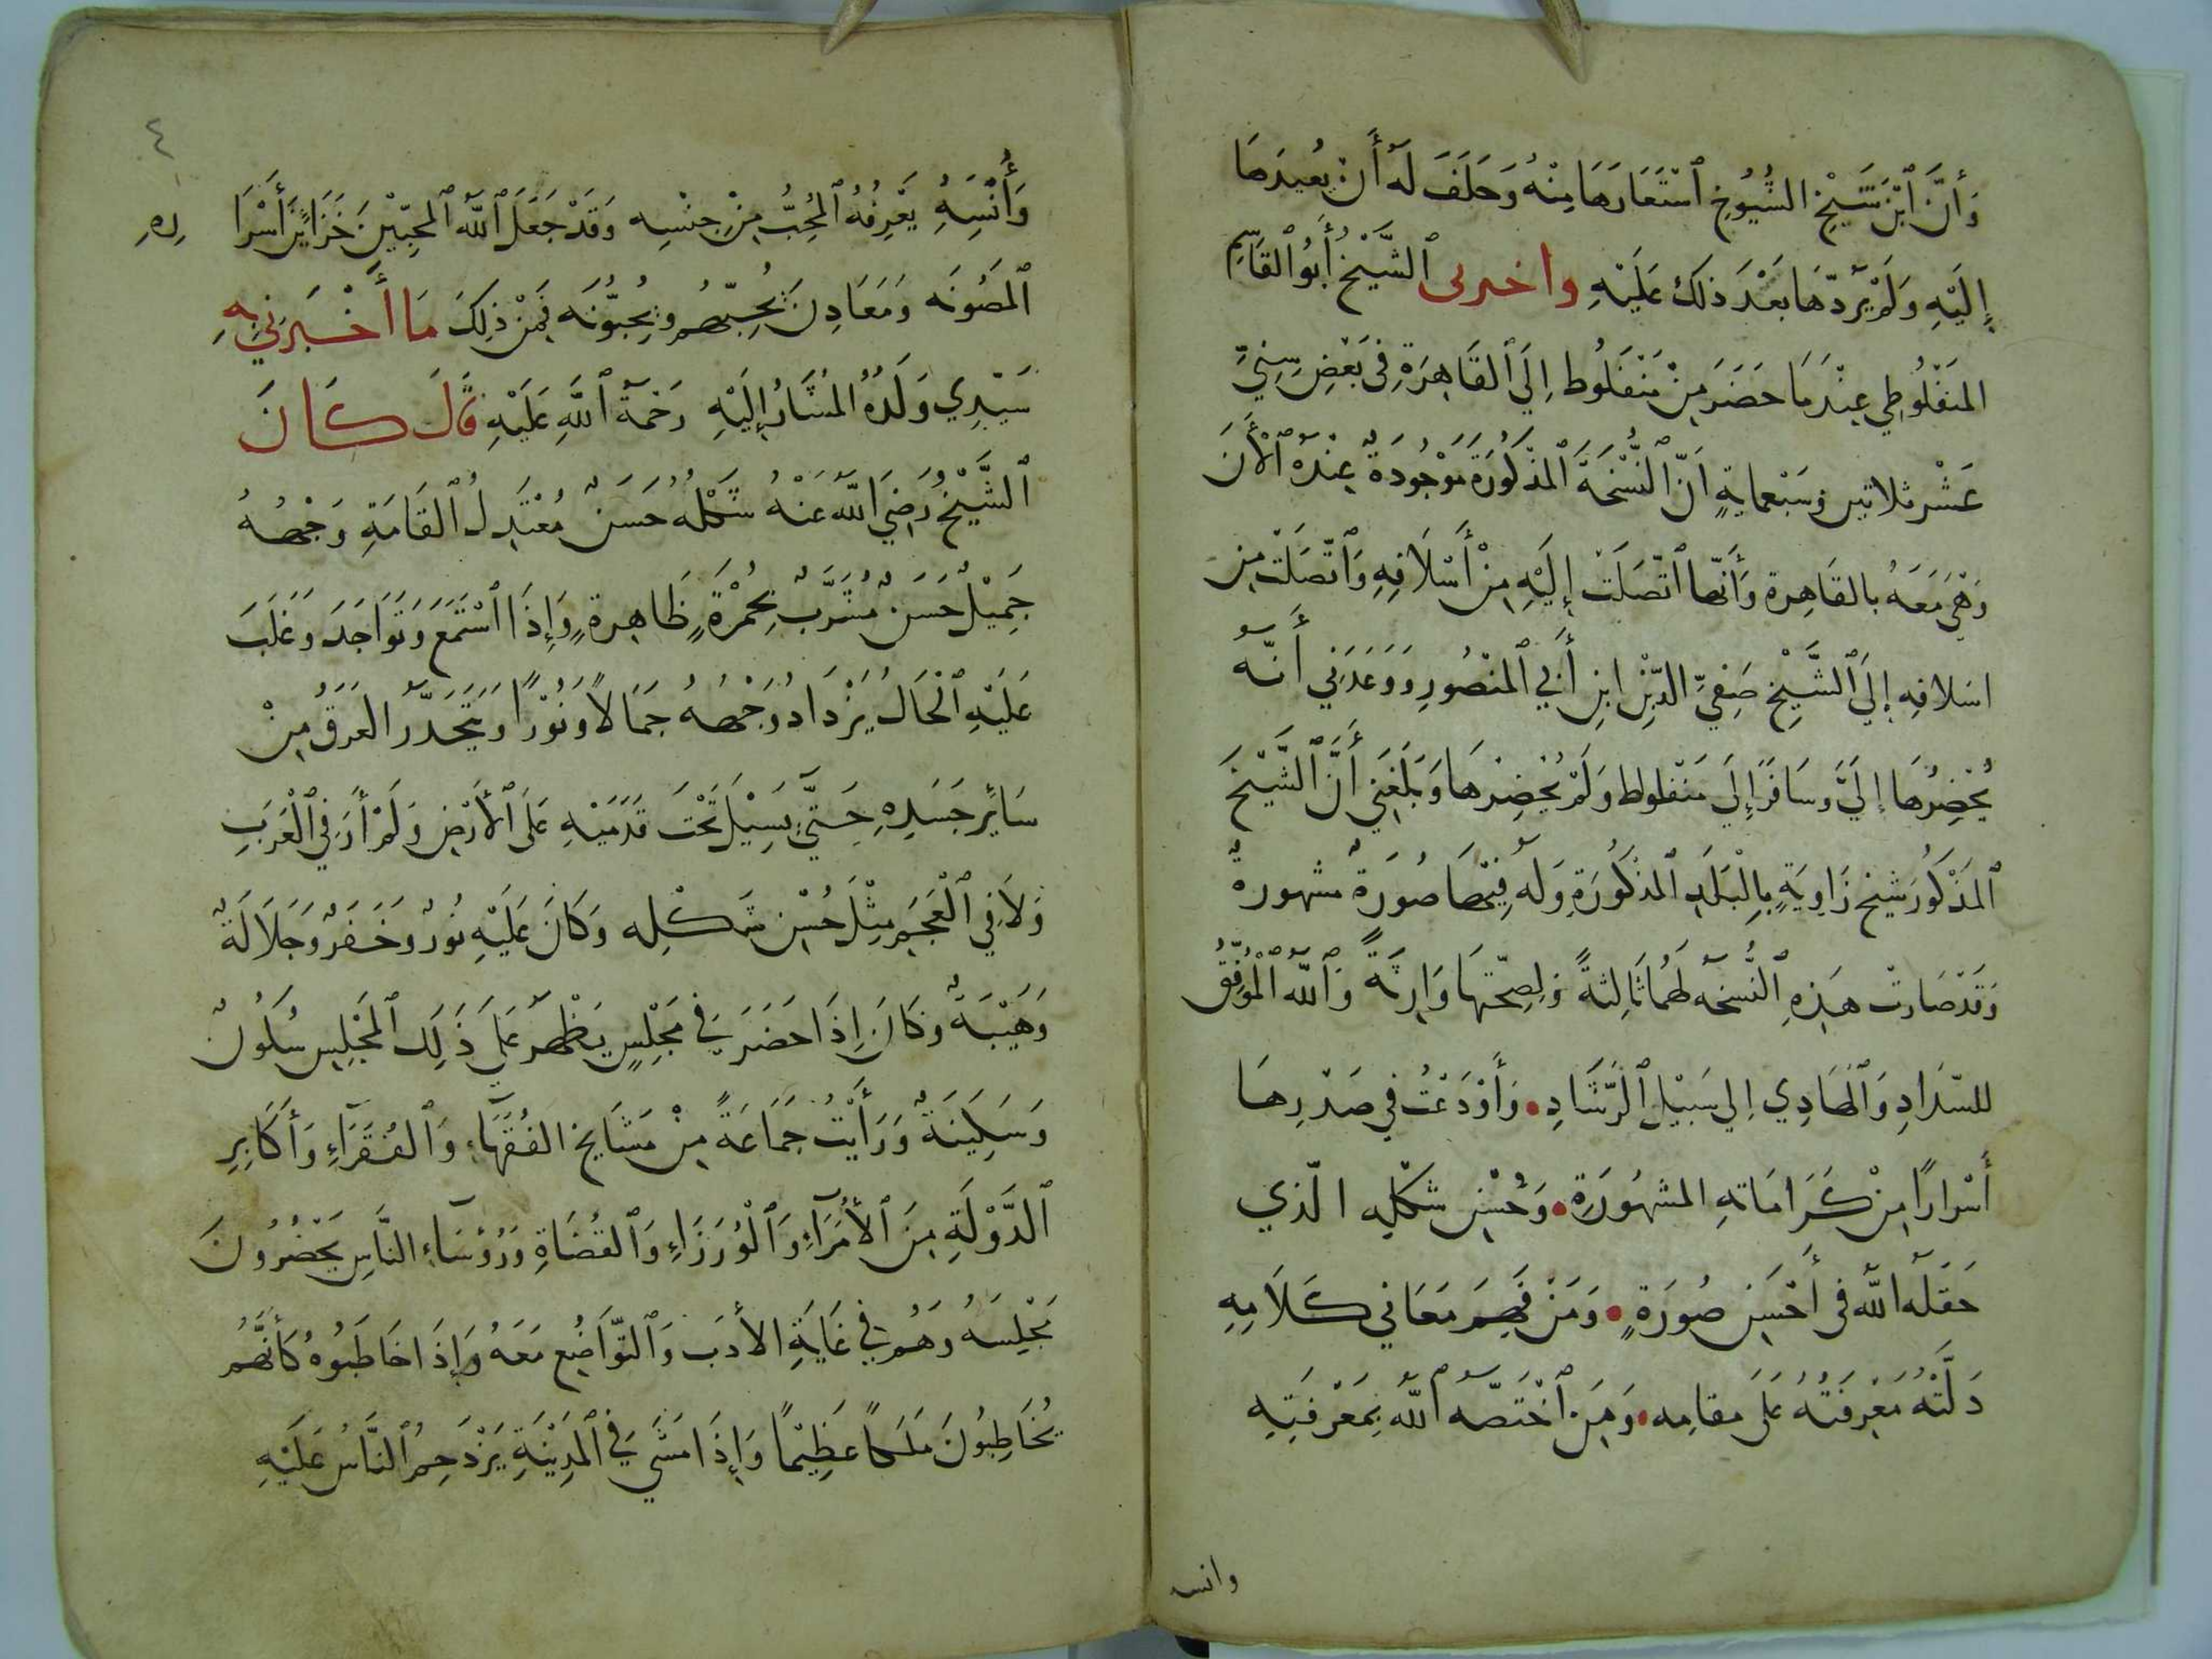 وَأَنَّ ٱبْنَ شَيْخِ الشُّيُوخِ ٱسْتَعَارَهَا مِنْهُ وَحَلَفَ لَهُ أَنْ يُعِيدَهَا
إِلَيْهِ وَلَمْ يَرُدّهَا بَعْدَ ذَلِكَ عَلَيْهِ واخبرنى ٱلشَّيْخُ أَبُو ٱلقَاسِمِ
المَنفَلُوطِي عِنْدَمَا حَضَرَ مِنْ مَنْفَلُوط إِلَي ٱلقَاهِرَةِ فِى بَعْضِ سِنِيِّ
عَشْر ثلاثين وَسَبْعمايةٍ أَنّ ٱلنُّسْخَةَ ٱلمَذْكُورَةَ مَوْجُودَةٌ عِنْدَهُ ٱلْأَنَ
وَهْيَ مَعَهُ بالقَاهِرة وَأَنّها ٱتّصَلَتْ إِلَيْهِ مِنْ أَسْلَافِهِ وَٱتّصَلَتْ مِن
اسَلافِه إِلَي ٱلشَّيْخِ صَفِيِّ الدِّيْنِ ابنِ أَبِي ٱلمَنْصُورِ وَوَعَدَنِي أَنّهُ
يُحْضِرُهَا إِلَيَّ وسَافَرَ إِلَي مَنْفلوط وَلَمْ يُحْضِرْهَا وَبَلَغَنِي أَنَّ ٱلشَّيْخَ
ٱلمَذْكُورَ شيخ زَاوِيَةٍ بِالْبَلَدِ ٱلمذْكُورَةِ وَلَهُ فِيْهَا صُورَةٌ مشهورةٌ
وَقَدْ صَارتْ هَذِهِ ٱلنُّسْخَهُ لَهُمَا ثَالِثةً وَلِصِحّتِهَا وَارِثَةً وَٱللّهُ ٱلْمُوَفِّقُ
للسّدَادِ وَٱلْهَادِي إِلي سَبِيْلِ ٱلرَّشَادِ • وَأَوْدَعْتُ فِي صَدْرِهَا
أَسْرارًا مِنْ كَرَامَاتهِ المشهُورَةِ • وَحُسْنِ شَكْلِهِ الّذي
جَعَلَهُ اللّهُ فى أَحْسَنِ صُورَةٍ • وَمَنْ فَهِمَ مَعَانِي كَلَامِهِ
دَلَّتْهُ مَعْرِفَتُهُ عَلَى مَقامِه • وَمَنِ ٱخْتَصَّهُ ٱللّهُ بِمَعْرِفَتِهِ
وانسه
٤
وَأُنْسِهِ يَعْرِفُهُ ٱلمُحِبُّ مِنْ جِنْسِه وَقَدْ جَعَلَ ٱللّهُ ٱلمحِبِّيْنَ خَزَايِنَ أَسْرَا رِهِ
ٱلمَصُونَه وَمَعَادِنَ يُحِبّهُم وَيُحِبُّونَه فَمِنْ ذلِكَ مَا أَخْبَرَنِي بِهِ
سَيِّدِي وَلَدُهُ المُشَارُ إِلَيْهِ رَحْمَةُ ٱللَّهِ عَلَيْهِ قَالَ كَانَ
ٱلشَّيْخُ رَضِيَ ٱللّهُ عَنْهُ شَكْلُهُ حَسَنٌ مُعْتَدِلُ ٱلقَامَةِ وَجْهُهُ
جَمِيْلٌ حَسَنٌ مُشَرَّبٌ بِحُمْرَةٍ ظَاهِرةٍ وَإِذَا ٱسْتَمَعَ وَتَوَاجَدَ وَغَلَبَ
عَلَيْهِ ٱلْحَالُ يَزْدَادُ وَجْهُهُ جَمَالًا وَنُوْرًا وَيَتَحَدَّرُ العَرَقُ مِنْ
سَائِر جَسَدِهِ حَتَّي يَسِيْلَ تَحْتَ قَدَمَيْهِ عَلَى ٱلأَرْضِ وَلَمْ أَرَ فِي ٱلْعَرَبِ
وَلَا فِي ٱلْعَجَمِ مِثْلَ حُسْنِ شَكْلِه وَكَانَ عَلَيْهِ نُورٌ وَخَفَرٌ وَجَلَالَةٌ
وَهَيْبَةٌ وَكَانَ إِذَا حَضَرَ فِي مَجْلِسٍ يَظْهَرُ عَلَى ذَلِكَ ٱلمَجْلِسِ سُكُونٌ
وَسَكِيْنَةٌ وَرَأَيْتُ جَمَاعَةً مِنْ مَشَايِخِ الفُقَهَاءِ وَٱلفُقَرَاءِ وَأَكَابِرِ
ٱلدَّوْلَةِ مِنَ ٱلأُمَرَاءِ وَٱلْوُزَرَاءِ وَٱلقُضَاةِ وَرُؤَسَاءِ النَّاسِ يَحْضُرُونَ
مَجْلِسَهُ وَهُم فِي غَايَةِ الأَدَبِ وَٱلتّوَاضُعِ مَعَهُ وَإِذَا خَاطَبُوهُ كَأَنَّهُمْ
يُخَاطِبُونَ مَلِكًا عَظِيْمًا وَإِذَا مَشَي فِي ٱلْمَدِيْنَةِ يَزْدَحِمُ ٱلنَّاسُ عَلَيْهِ